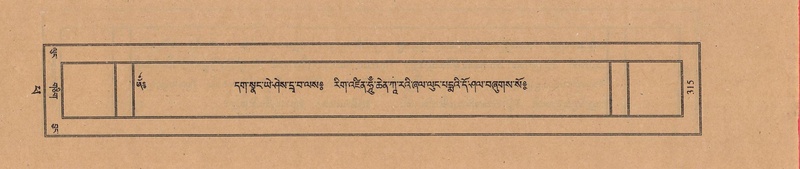 ཨོཾ༔ དག་སྣང་ཡེ་ཤེས་དྲྭ་བ་ལས༔ རིག་འཛིན་ཧཱུྃ་ཆེན་ཀཱ་རའི་ཞལ་ལུང་པདྨའི་དོ་ཤལ་བཞུགས་སོ༔
315